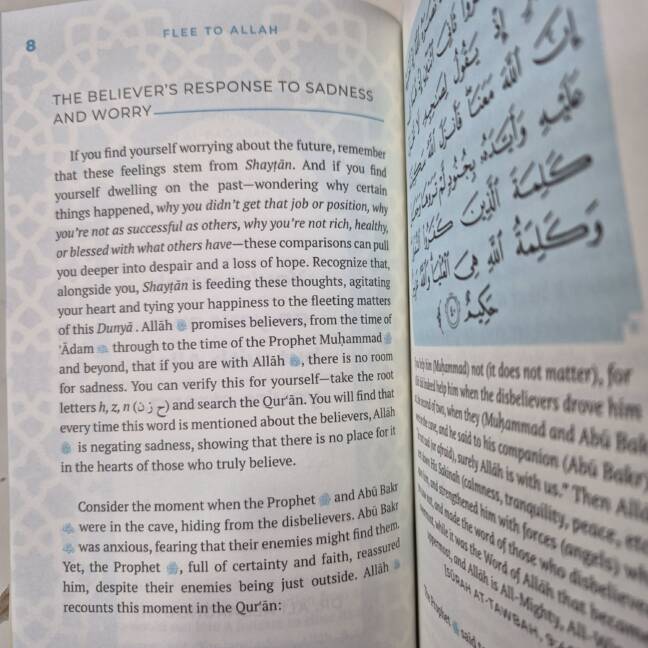 8
FLEE TO ALLAH
THE BELIEVER'S RESPONSE TO SADNESS
AND WORRY
If you find yourself worrying about the future, remember
that these feelings stem from Shayṭān. And if you find
yourself dwelling on the past—wondering why certain
things happened, why you didn't get that job or position, why
you're not as successful as others, why you're not rich, healthy,
or blessed with what others have—these comparisons can pull
you deeper into despair and a loss of hope. Recognize that,
alongside you, Shayṭān is feeding these thoughts, agitating
your heart and tying your happiness to the fleeting matters
of this Dunyā. Allāh promises believers, from the time of
'Ādam through to the time of the Prophet Muḥammad
and beyond, that if you are with Allāh, there is no room
for sadness. You can verify this for yourself—take the root
letters h, z, n (ح ز ن) and search the Qur'ān. You will find that
every time this word is mentioned about the believers, Allāh
is negating sadness, showing that there is no place for it
in the hearts of those who truly believe.
Consider the moment when the Prophet and Abū Bakr
were in the cave, hiding from the disbelievers. Abū Bakr
was anxious, fearing that their enemies might find them.
Yet, the Prophet, full of certainty and faith, reassured
him, despite their enemies being just outside. Allāh
recounts this moment in the Qur'ān:
إِذْ يَقُولُ لِصَاحِبِهِ لَا
إِنَّ اللَّهَ مَعَنَا فَأَنزَلَ اللَّهُ
عَلَيْهِ وَأَيَّدَهُ بِجُنُودٍ لَّمْ تَرَوْهَا
كَلِمَةَ الَّذِينَ كَفَرُوا
وَكَلِمَةُ اللَّهِ هِيَ الْعُلْيَا وَاللَّهُ
حَكِيمٌ ٤٠
help him (Muḥammad) not (it does not matter), for
indeed help him when the disbelievers drove him
the second of two, when they (Muḥammad and Abū Bakr
the cave, and he said to his companion (Abū Bakr)
(or afraid), surely Allāh is with us." Then Allā
His Sakīnah (calmness, tranquility, peace, etc
and strengthened him with forces (angels) wh
not, and made the word of those who disbelieve
while it was the Word of Allāh that became
uppermost, and Allāh is All-Mighty, All-Wis
[SŪRAH AT-TAWBAH, 9:4
The Prophet said to